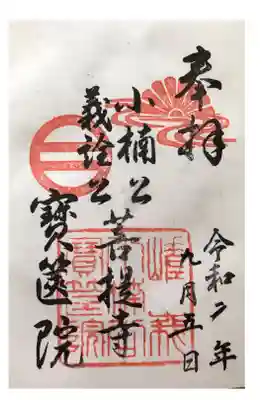 奉拝
令和二年
九月五日
小楠公
義詮公
菩提寺
寳篋院